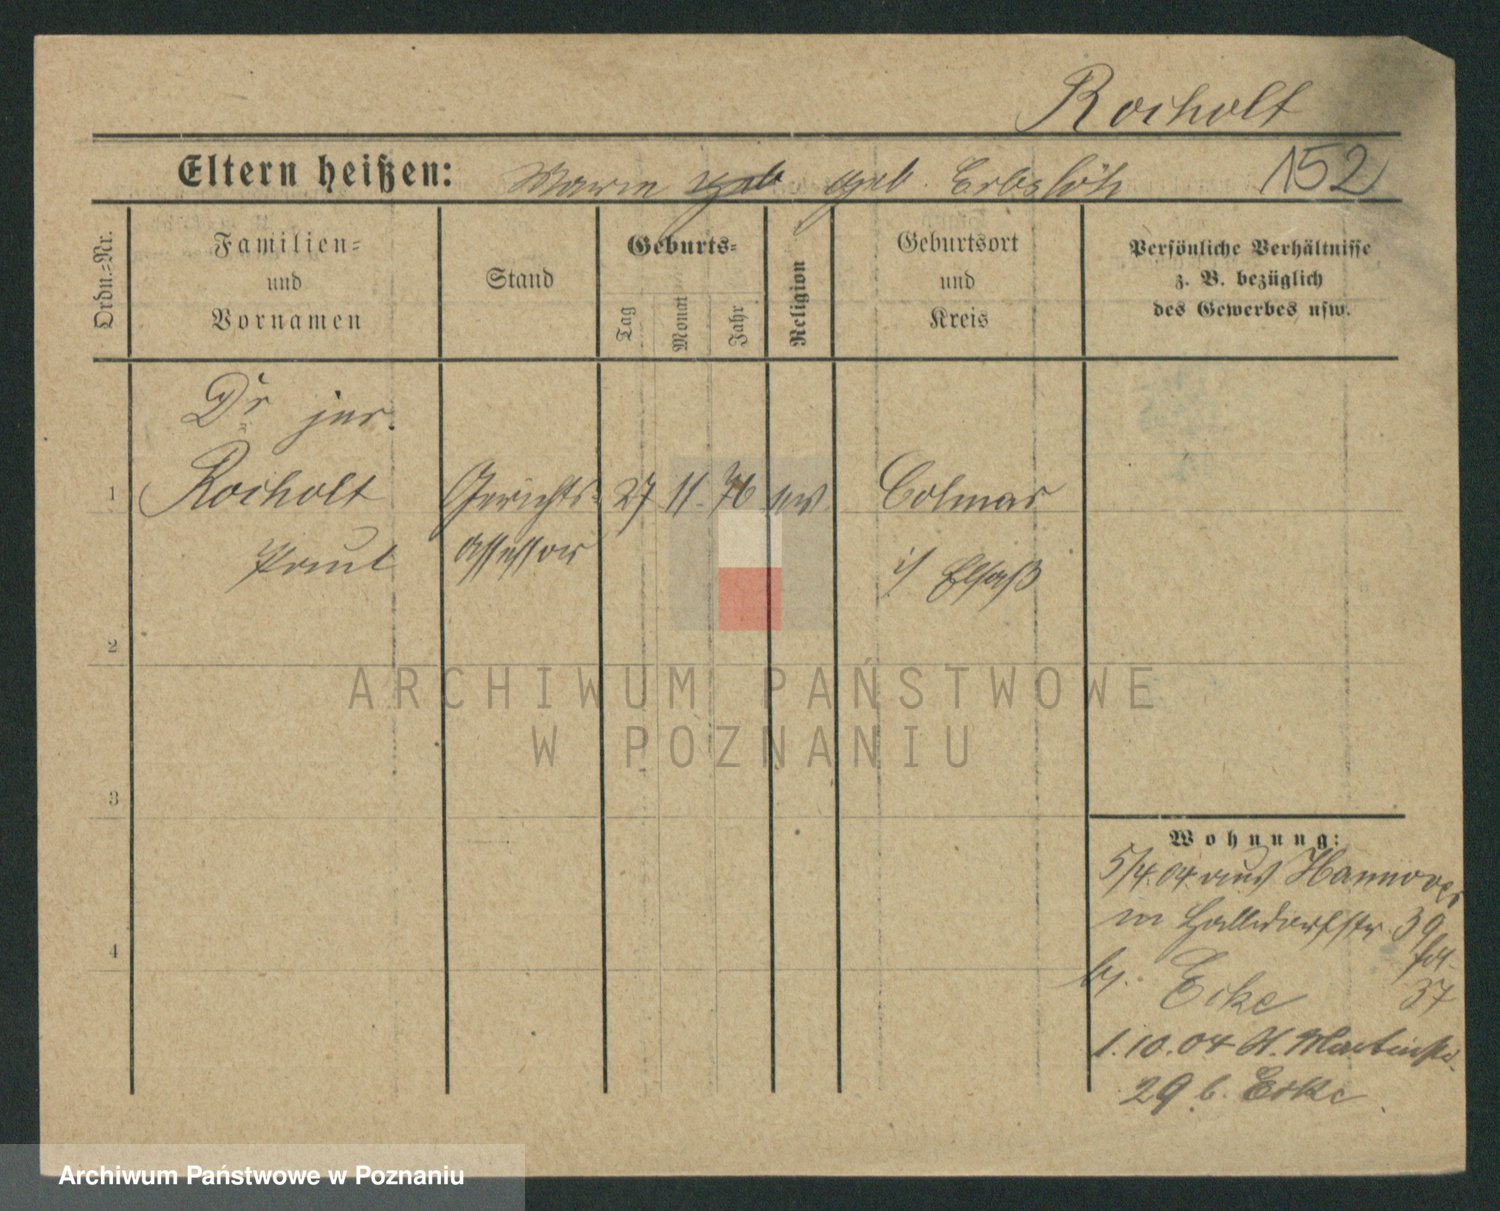 Rocholt
Eltern heißen: Marie geb. geb. Erbslöh 152
Ordn.=Nr.
Familien=
und
Vornamen
Stand
Geburts=
Tag
Monat
Jahr
Religion
Geburtsort
und
Kreis
Persönliche Verhältnisse
z. B. bezüglich
des Gewerbes usw.
Dr jur.
1 Rocholt Gerichts= 27 11. 76 ev. Colmar
Paul assessor i/ Elsaß
2
3
4
Wohnung:
5/4.04. aus Hannover
in Halldorfstr. 39
bz. Ecke 37
1.10.04 St. Martinstr.
29 b. Ecke
ARCHIWUM PAŃSTWOWE
W POZNANIU
Archiwum Państwowe w Poznaniu